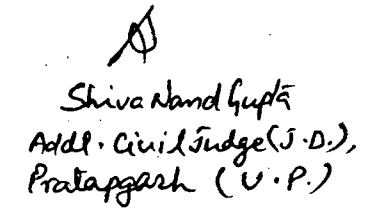 Shiva Nand Gupta
Addl. Civil Judge (J.D.),
Pratapgarh (U.P.)